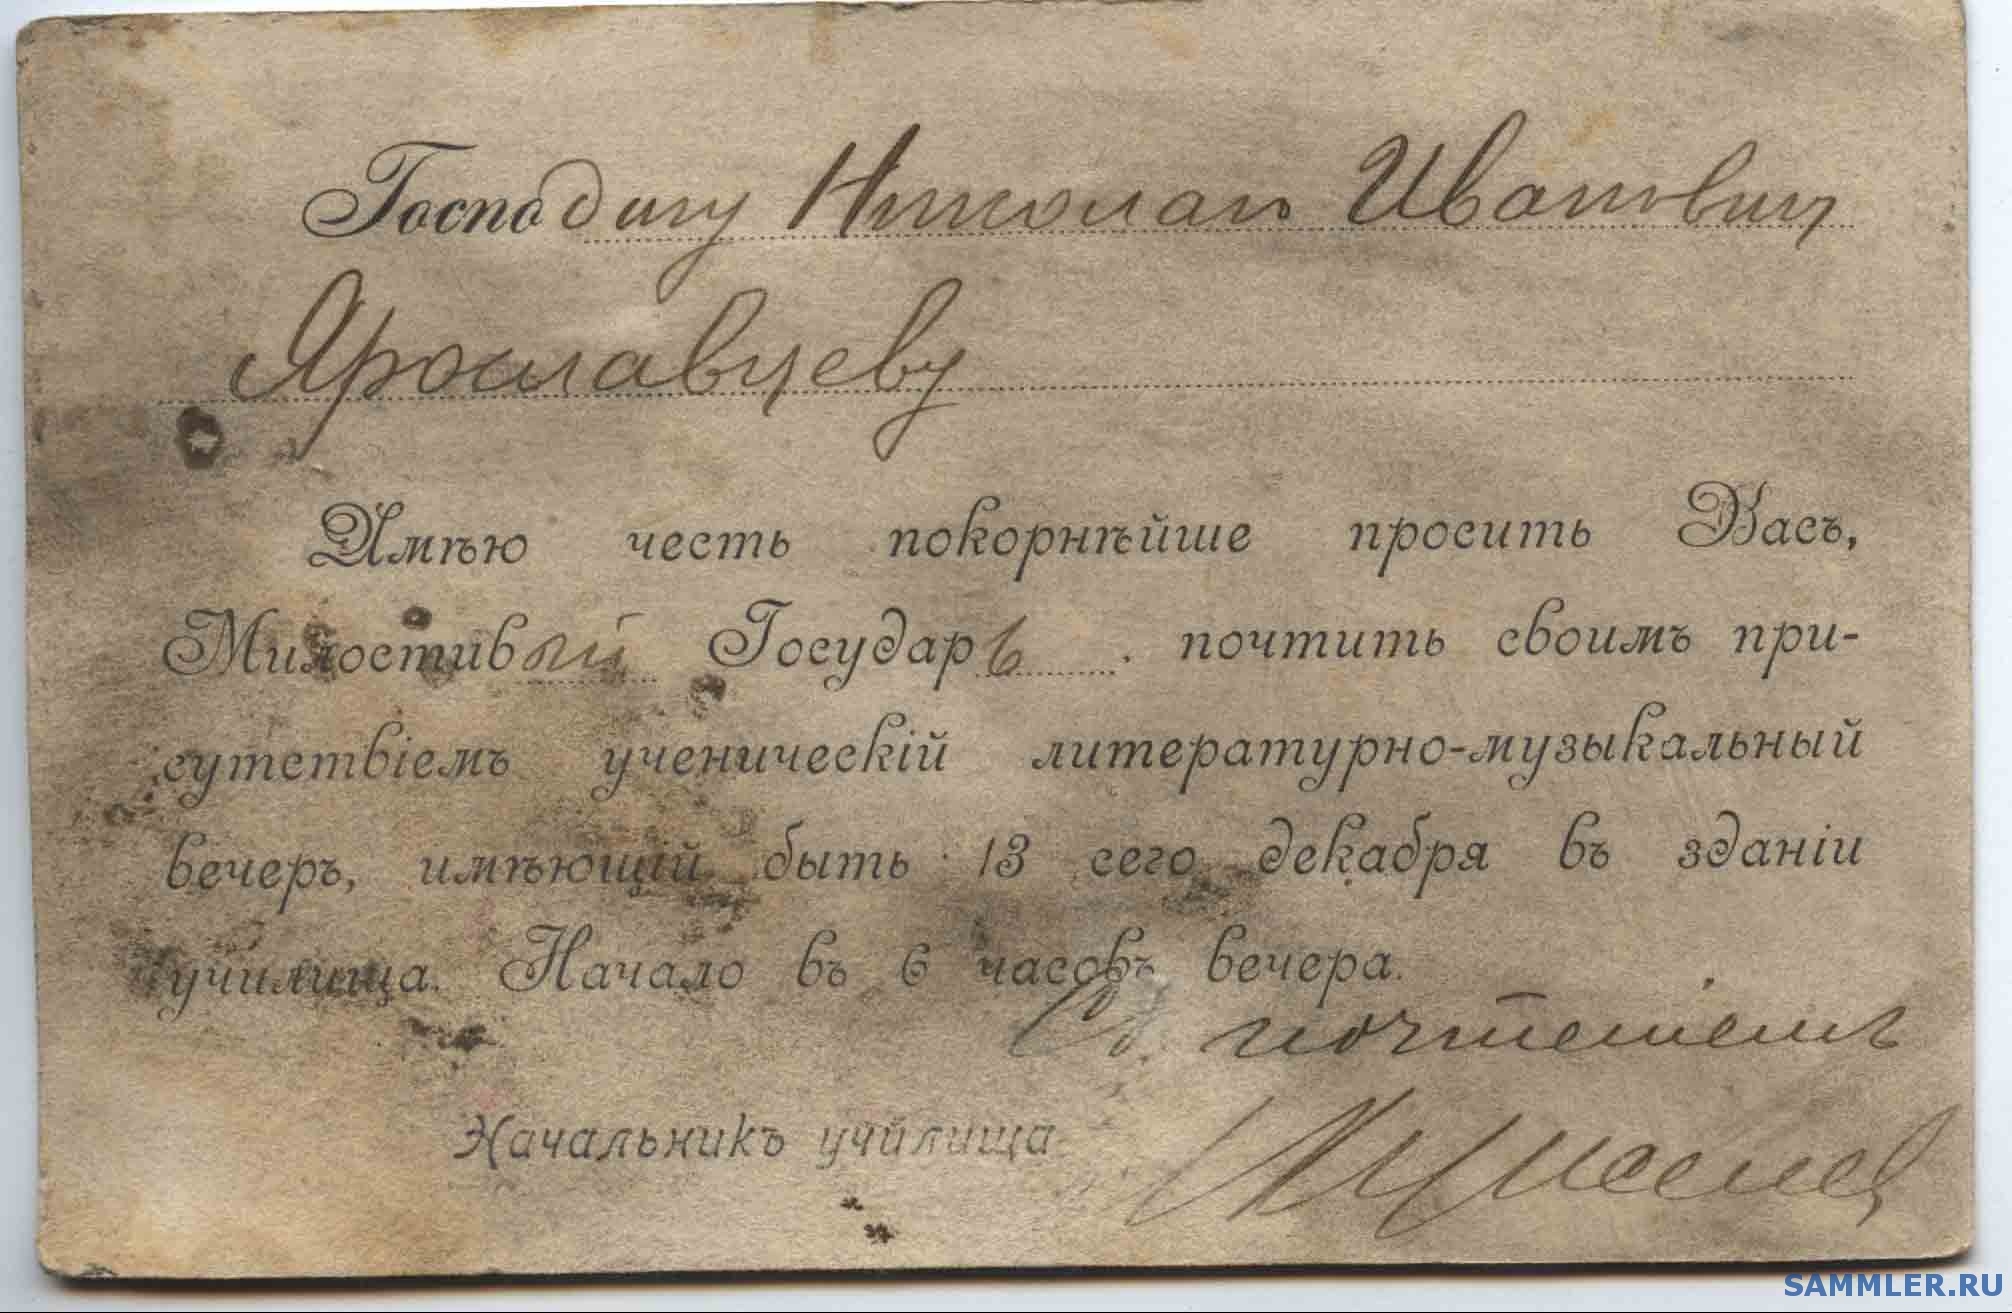 Господину Николаю Ивановичу
Ярославцеву
Имѣю честь покорнѣйше просить Васъ,
Милостивый Государь почтить своимъ при-
сутствіемъ ученическій литературно-музыкальный
вечеръ, имѣющій быть 13 сего декабря въ зданіи
училища. Начало въ 6 часовъ вечера.
Съ почтеніемъ
Начальникъ училища
SAMMLER.RU